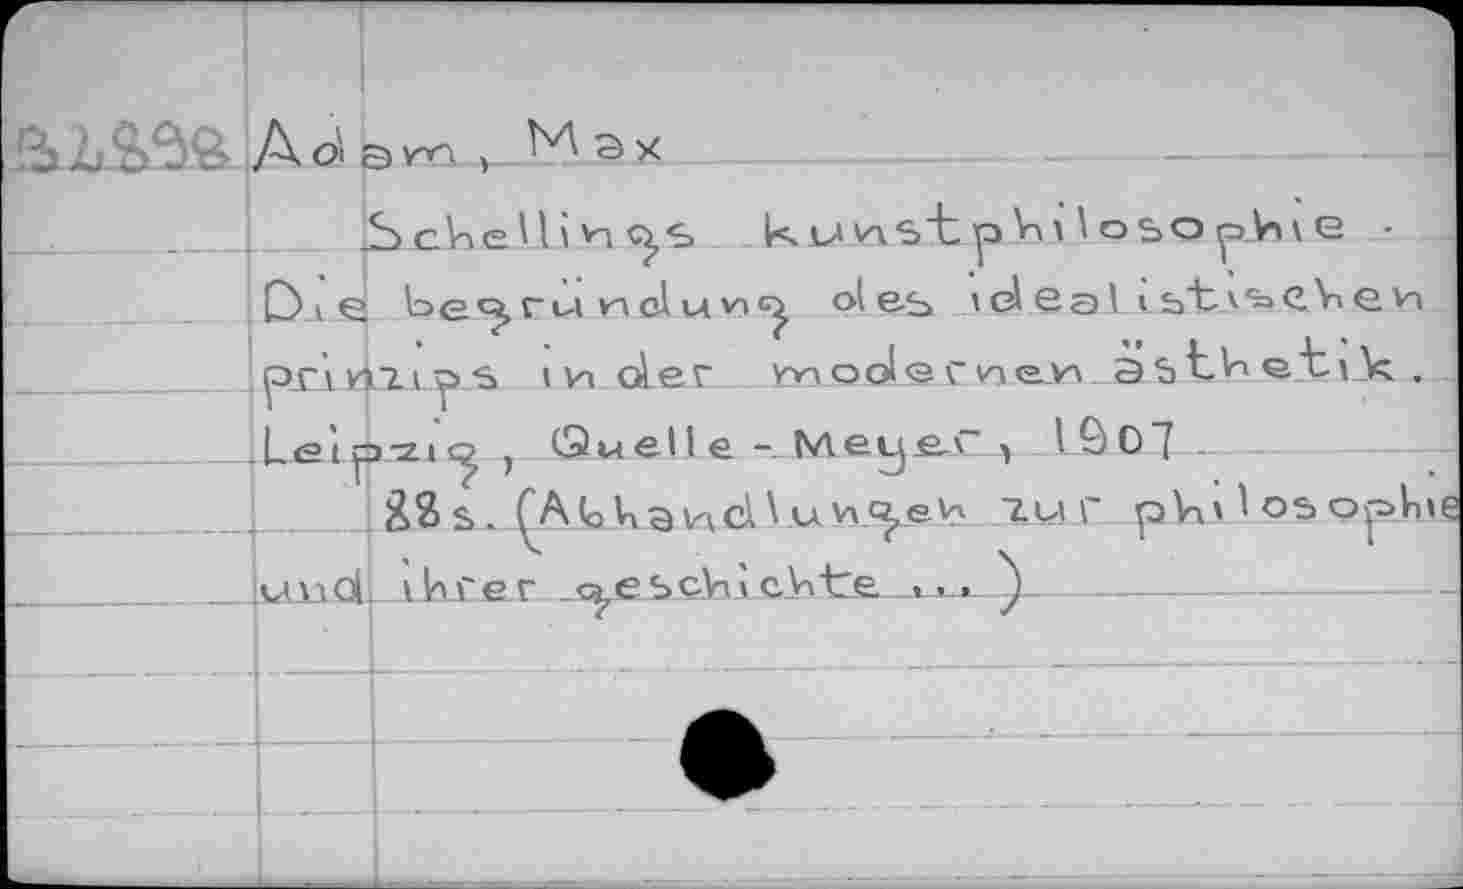 Adam, Max
Schellings kunstphilosophie -
Die begründung des idealistischen
prinzips in der modernen ästhetik.
Leipzig, Quelle - Meyer, 1907
88 s. (Abhandlungen zur philosophie
und ihrer geschichte ...)